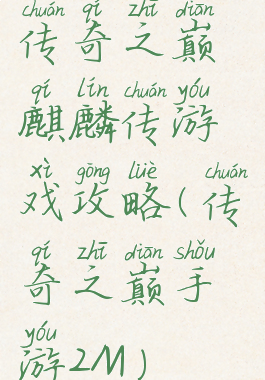 chuán qí zhī diān
传奇之巅
qí lín chuán yóu
麒麟传游
xì gōng lüè chuán
戏攻略(传
qí zhī diān shǒu
奇之巅手
yóu
游2M)